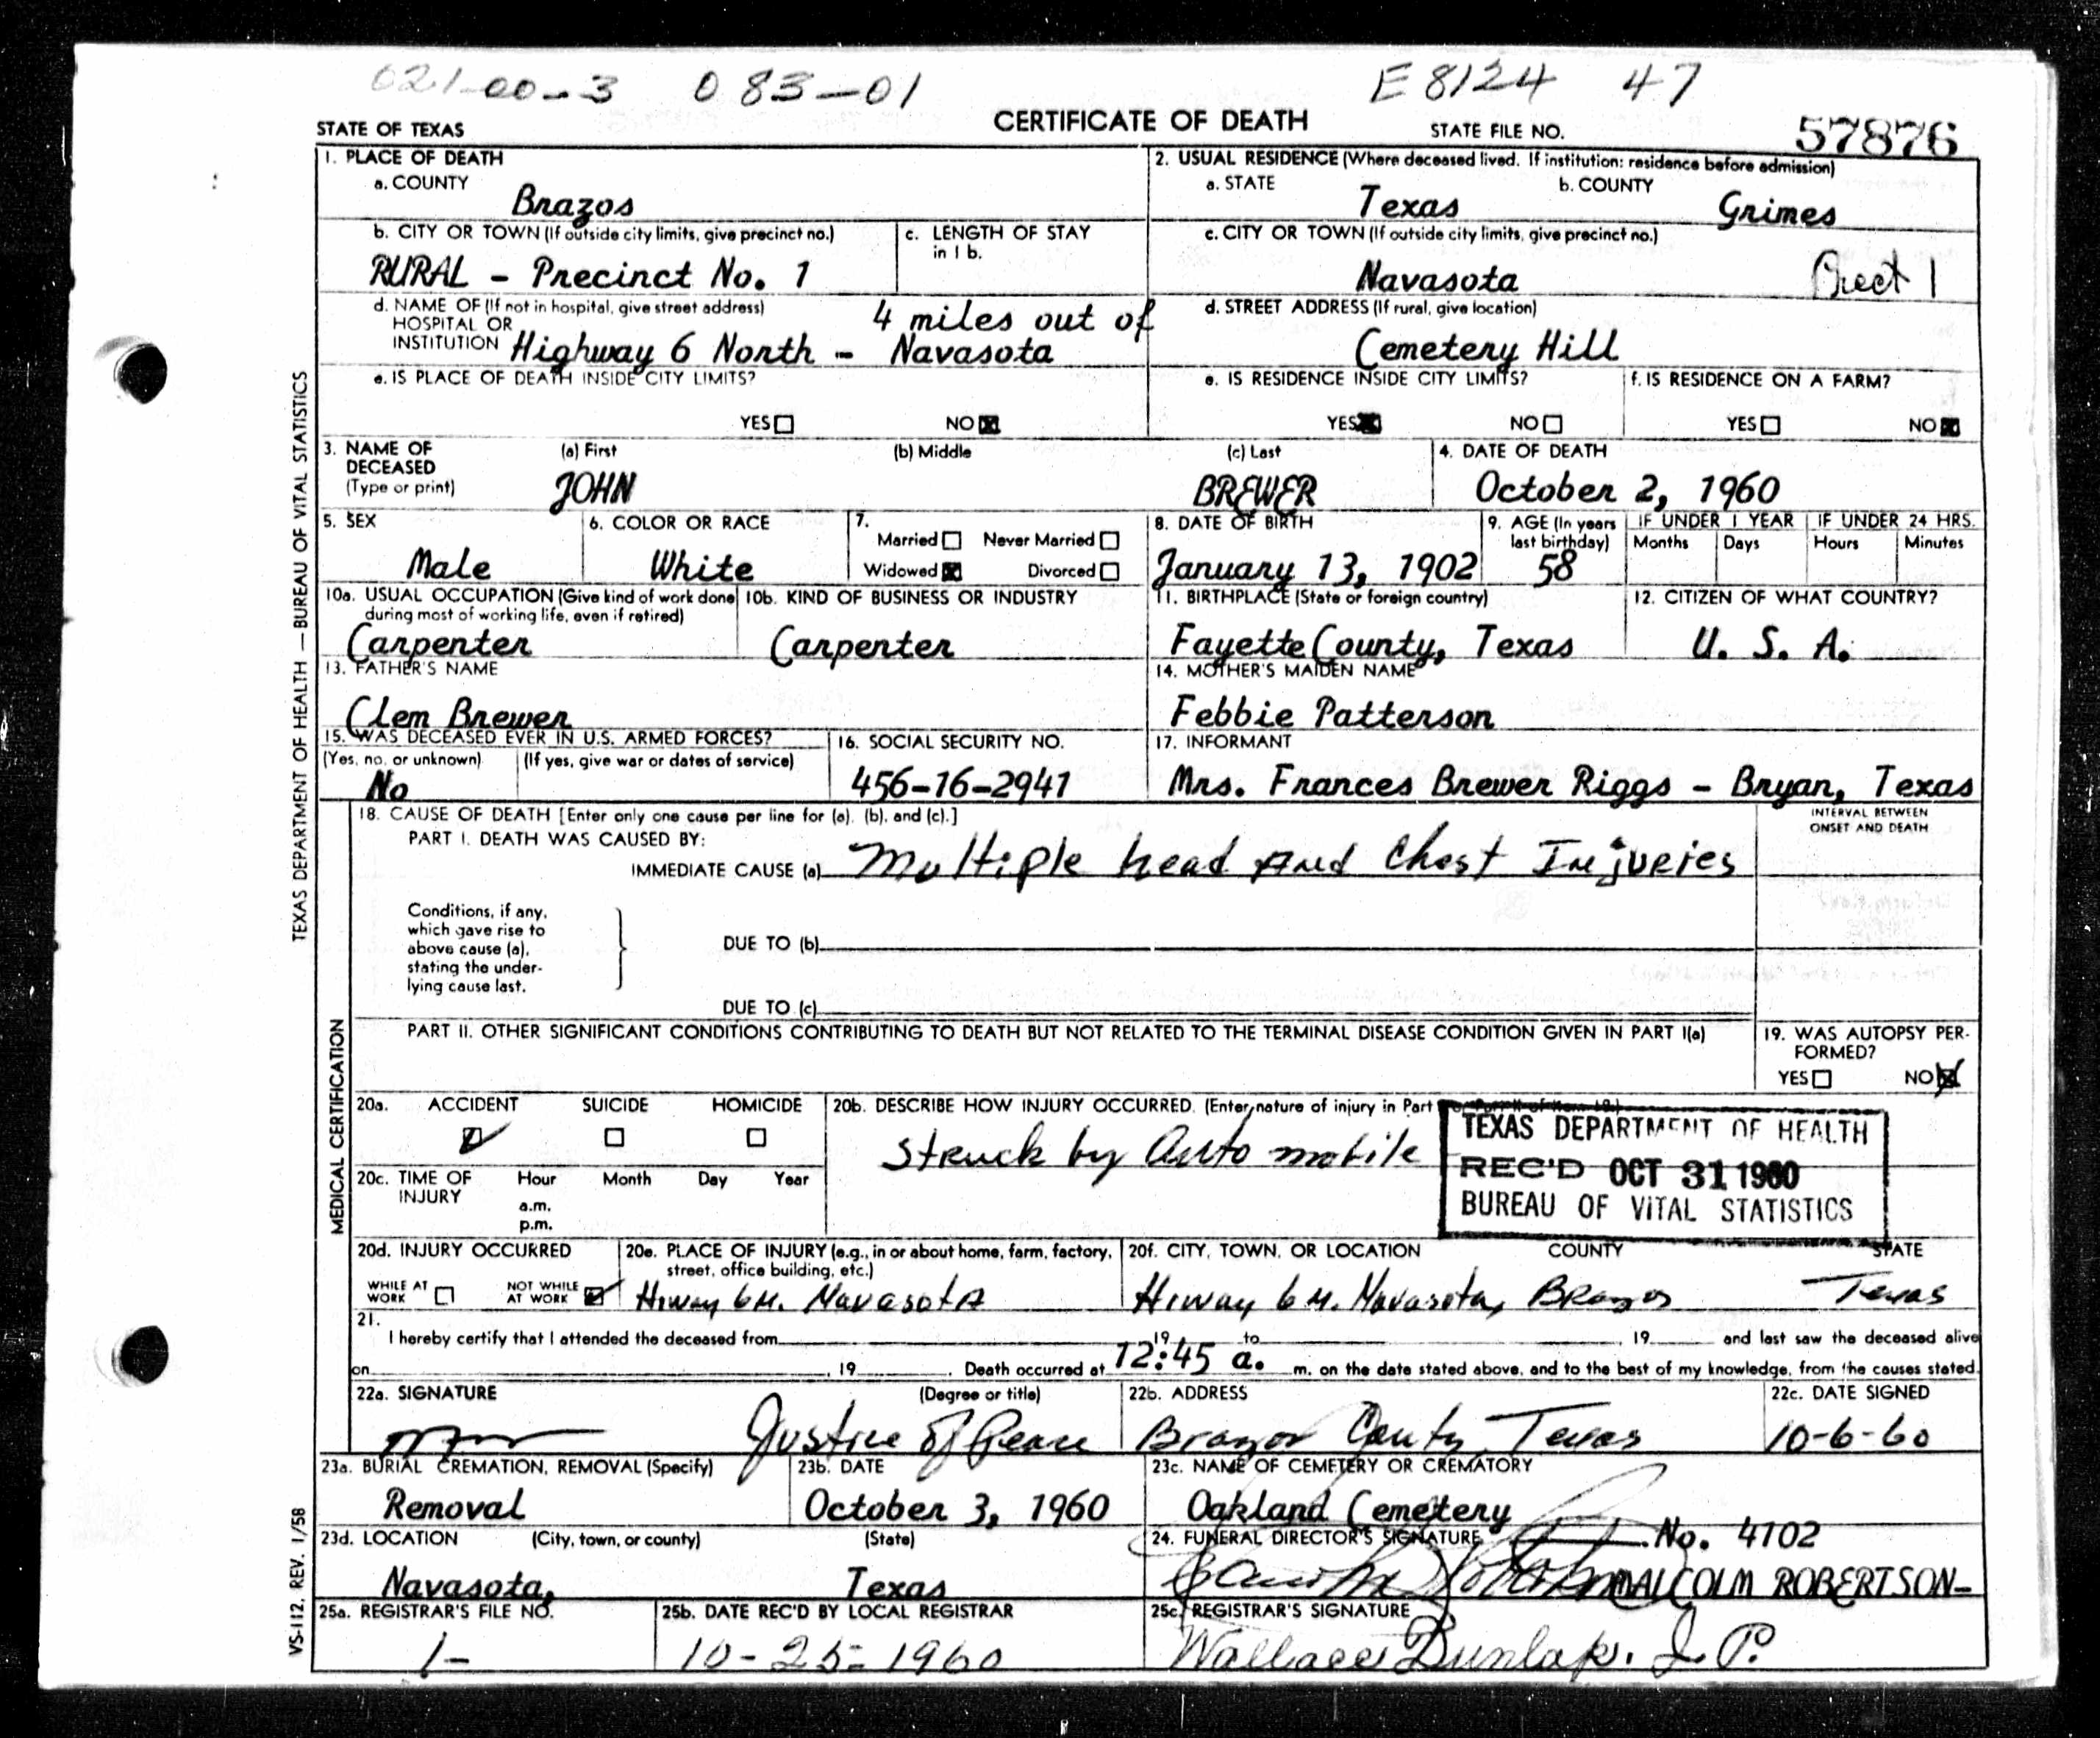 021-00-3 083-01 E 8124 47
STATE OF TEXAS CERTIFICATE OF DEATH STATE FILE NO. 57876
1. PLACE OF DEATH
a. COUNTY
Brazos
2. USUAL RESIDENCE (Where deceased lived. If institution: residence before admission)
a. STATE b. COUNTY
Texas Grimes
b. CITY OR TOWN (If outside city limits, give precinct no.)
RURAL - Precinct No. 1
c. LENGTH OF STAY
in 1 b.
c. CITY OR TOWN (If outside city limits, give precinct no.)
Navasota Prect 1
d. NAME OF (If not in hospital, give street address)
HOSPITAL OR
INSTITUTION
4 miles out of
Highway 6 North - Navasota
d. STREET ADDRESS (If rural, give location)
Cemetery Hill
e. IS PLACE OF DEATH INSIDE CITY LIMITS?
YES NO
e. IS RESIDENCE INSIDE CITY LIMITS?
YES NO
f. IS RESIDENCE ON A FARM?
YES NO
3. NAME OF
DECEASED
(Type or print)
(a) First (b) Middle (c) Last
JOHN BREWER
4. DATE OF DEATH
October 2, 1960
5. SEX
Male
6. COLOR OR RACE
White
7.
Married Never Married
Widowed Divorced
8. DATE OF BIRTH
January 13, 1902
9. AGE (In years
last birthday)
58
IF UNDER 1 YEAR IF UNDER 24 HRS.
Months Days Hours Minutes
10a. USUAL OCCUPATION (Give kind of work done
during most of working life, even if retired)
Carpenter
10b. KIND OF BUSINESS OR INDUSTRY
Carpenter
11. BIRTHPLACE (State or foreign country)
Fayette County, Texas
12. CITIZEN OF WHAT COUNTRY?
U. S. A.
13. FATHER'S NAME
Clem Brewer
14. MOTHER'S MAIDEN NAME
Febbie Patterson
15. WAS DECEASED EVER IN U.S. ARMED FORCES?
(Yes, no, or unknown) (If yes, give war or dates of service)
No
16. SOCIAL SECURITY NO.
456-16-2941
17. INFORMANT
Mrs. Frances Brewer Riggs - Bryan, Texas
18. CAUSE OF DEATH [Enter only one cause per line for (a), (b), and (c).]
PART I. DEATH WAS CAUSED BY:
IMMEDIATE CAUSE (a) Multiple head And Chest Injuries
INTERVAL BETWEEN
ONSET AND DEATH
Conditions, if any,
which gave rise to
above cause (a),
stating the under-
lying cause last.
DUE TO (b)
DUE TO (c)
PART II. OTHER SIGNIFICANT CONDITIONS CONTRIBUTING TO DEATH BUT NOT RELATED TO THE TERMINAL DISEASE CONDITION GIVEN IN PART I(a)
19. WAS AUTOPSY PER-
FORMED?
YES NO
20a. ACCIDENT SUICIDE HOMICIDE
20b. DESCRIBE HOW INJURY OCCURRED. (Enter nature of injury in Part
Struck by Auto mobile
TEXAS DEPARTMENT OF HEALTH
REC'D OCT 31 1960
BUREAU OF VITAL STATISTICS
20c. TIME OF
INJURY
Hour Month Day Year
a.m.
p.m.
20d. INJURY OCCURRED
WHILE AT
WORK
NOT WHILE
AT WORK
20e. PLACE OF INJURY (e.g., in or about home, farm, factory,
street, office building, etc.)
Hiway 6 N. Navasota
20f. CITY, TOWN, OR LOCATION COUNTY STATE
Hiway 6 N. Navasota, Brazos Texas
21.
I hereby certify that I attended the deceased from 19 to , 19 and last saw the deceased alive
on , 19 . Death occurred at 12:45 a. m. on the date stated above, and to the best of my knowledge, from the causes stated.
22a. SIGNATURE (Degree or title)
Justice of Peace
22b. ADDRESS
Brazos County, Texas
22c. DATE SIGNED
10-6-60
23a. BURIAL CREMATION, REMOVAL (Specify)
Removal
23b. DATE
October 3, 1960
23c. NAME OF CEMETERY OR CREMATORY
Oakland Cemetery
23d. LOCATION (City, town, or county) (State)
Navasota, Texas
24. FUNERAL DIRECTOR'S SIGNATURE No. 4102
MALCOLM ROBERTSON-
25a. REGISTRAR'S FILE NO.
1-
25b. DATE REC'D BY LOCAL REGISTRAR
10-25-1960
25c. REGISTRAR'S SIGNATURE
Wallace Dunlap. J. P.
TEXAS DEPARTMENT OF HEALTH — BUREAU OF VITAL STATISTICS
MEDICAL CERTIFICATION
VS-112, REV. 1/58